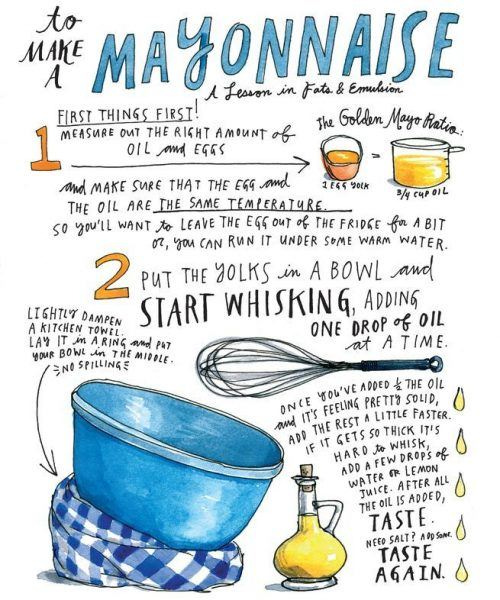 to
MAKE
A
MAYONNAISE
A Lesson in Fats & Emulsion
FIRST THINGS FIRST!
1 MEASURE OUT THE RIGHT AMOUNT of
OIL and EGGS
the Golden Mayo Ratio:
=
1 EGG YOLK
3/4 CUP OIL
and MAKE SURE THAT THE EGG and
THE OIL ARE THE SAME TEMPERATURE.
SO YOU'LL WANT to LEAVE THE EGG OUT OF THE FRIDGE for A BIT
or, YOU CAN RUN IT UNDER SOME WARM WATER.
2 PUT THE YOLKS in A BOWL and
START WHISKING, ADDING
ONE DROP of OIL
at A TIME.
LIGHTLY DAMPEN
A KITCHEN TOWEL.
LAY IT in A RING and PUT
YOUR BOWL in THE MIDDLE.
NO SPILLING
ONCE YOU'VE ADDED 1/2 THE OIL
and IT'S FEELING PRETTY SOLID,
ADD THE REST A LITTLE FASTER.
IF IT GETS SO THICK IT'S
HARD to WHISK,
ADD A FEW DROPS of
WATER OR LEMON
JUICE. AFTER ALL
THE OIL IS ADDED,
TASTE.
NEED SALT? ADD SOME.
TASTE
AGAIN.